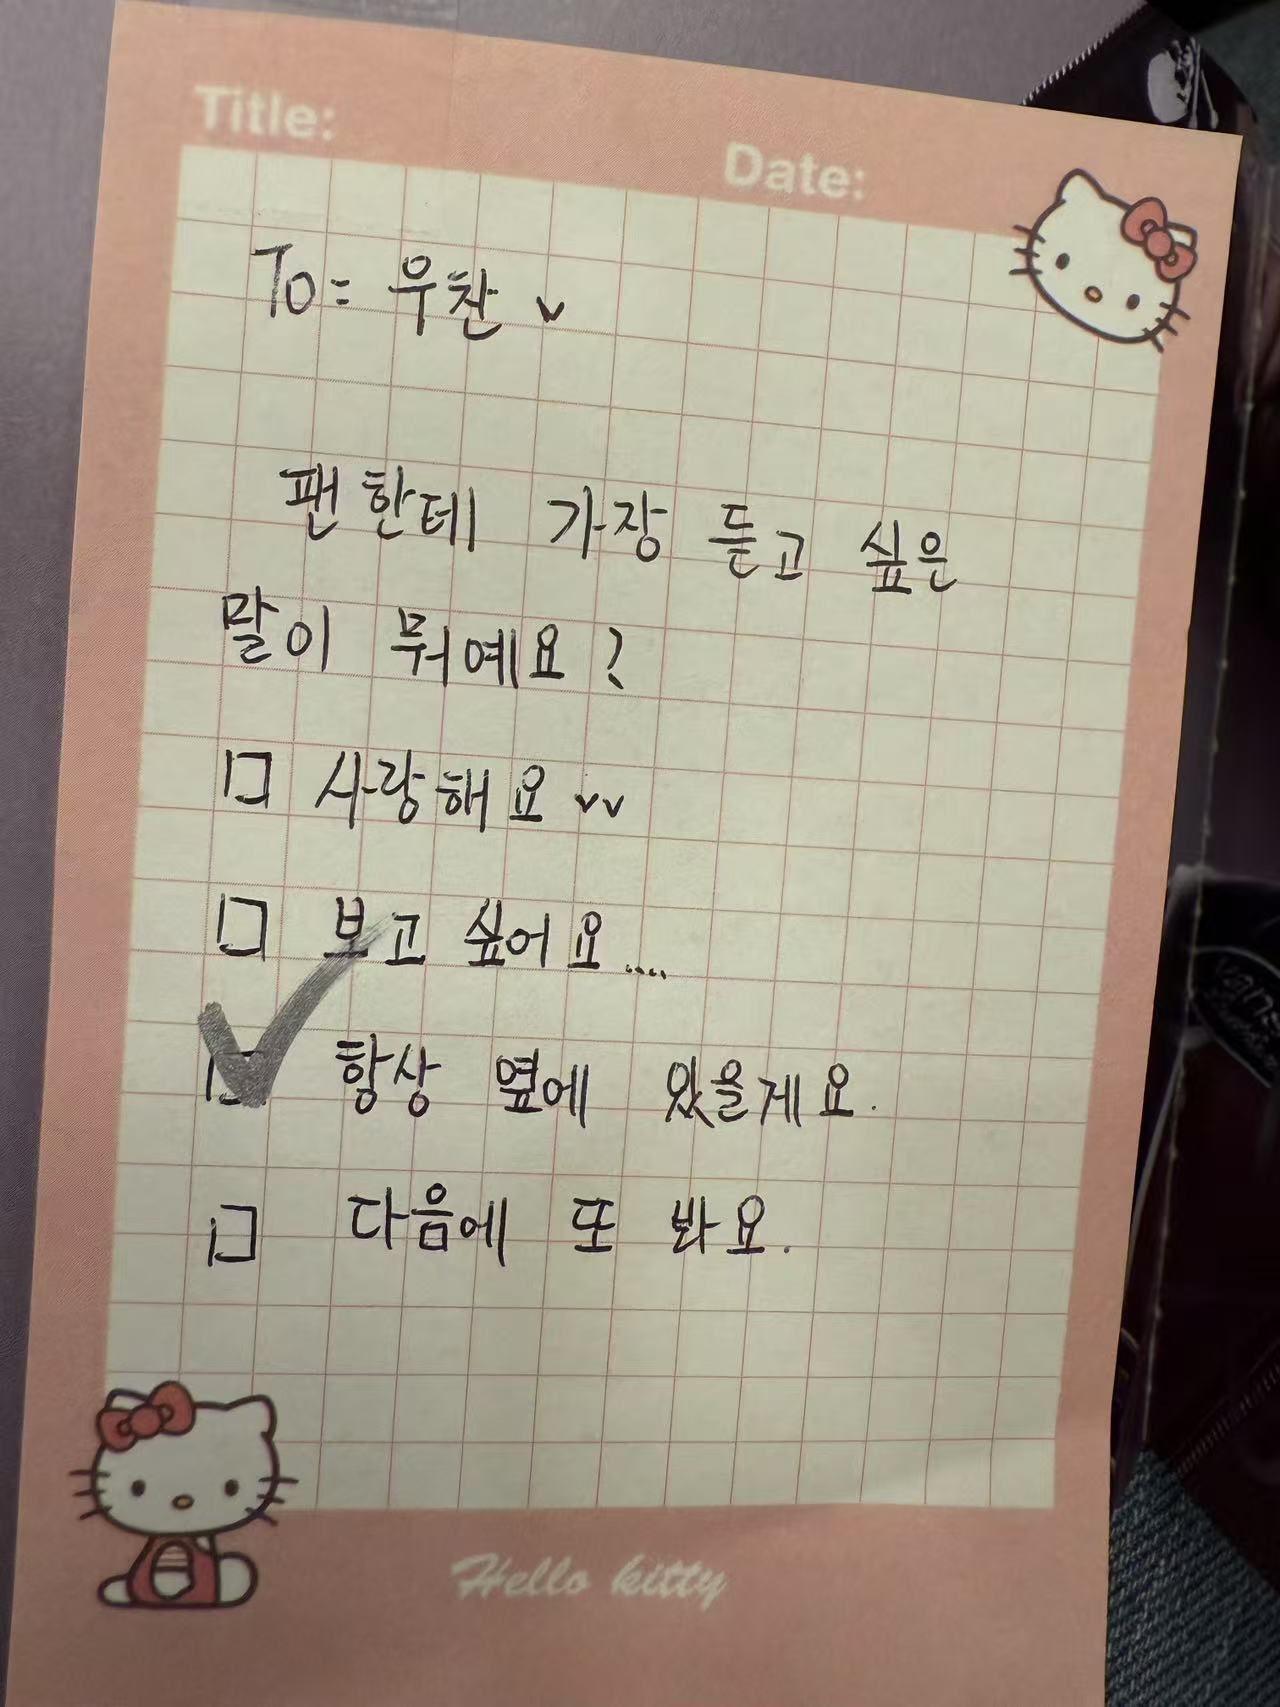 Title:
Date:
To= 우찬 ⌵
팬한테 가장 듣고 싶은
말이 뭐예요?
□ 사랑해요 ⌵⌵
□ 보고 싶어요....
☑ 항상 옆에 있을게요.
□ 다음에 또 봐요.
Hello kitty